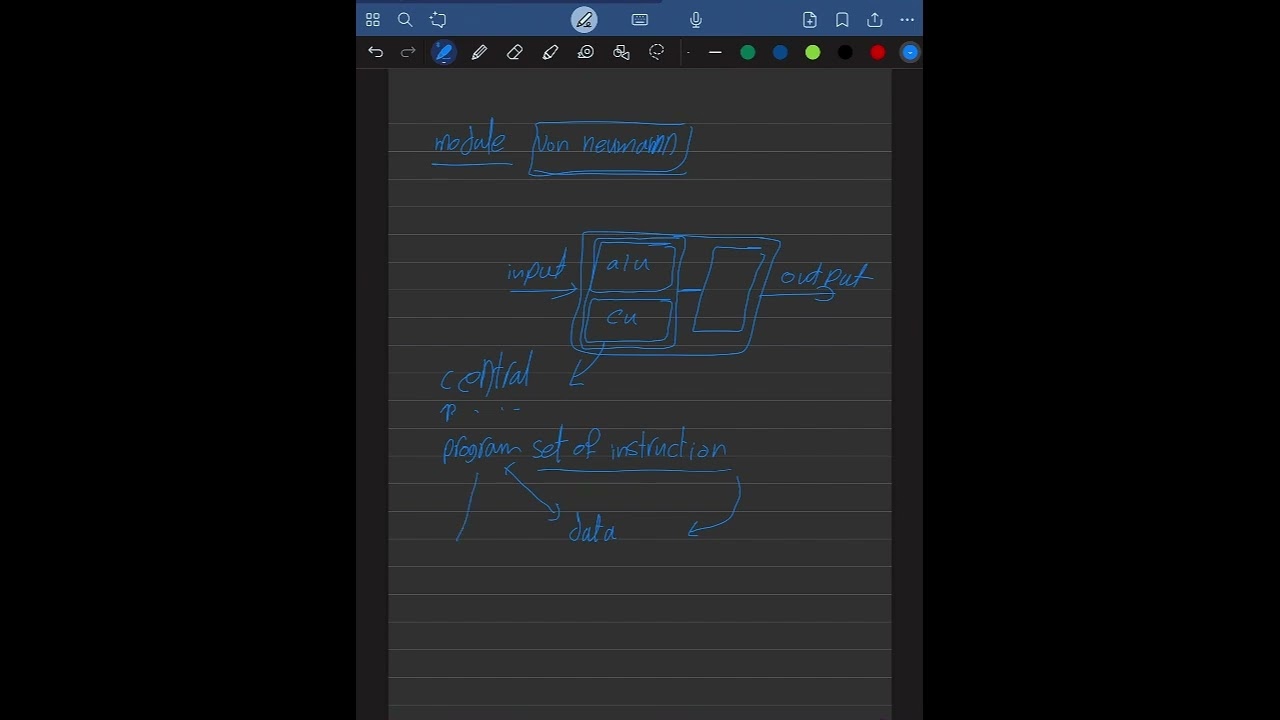 module von neumann
input alu output
cu
central
p
program set of instruction
data